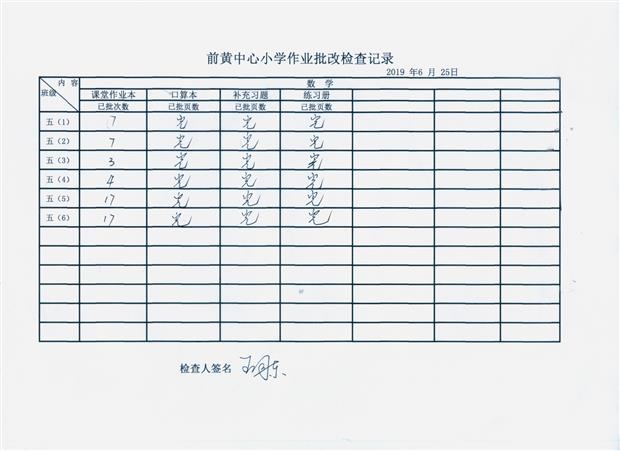 前黄中心小学作业批改检查记录
2019 年6 月 25日
内 容 数 学
班级 课堂作业本 口算本 补充习题 练习册
已批次数 已批页数 已批页数 已批页数
五（1） 7 完 完 完
五（2） 7 完 完 完
五（3） 3 完 完 完
五（4） 4 完 完 完
五（5） 17 完 完 完
五（6） 17 完 完 完
检查人签名